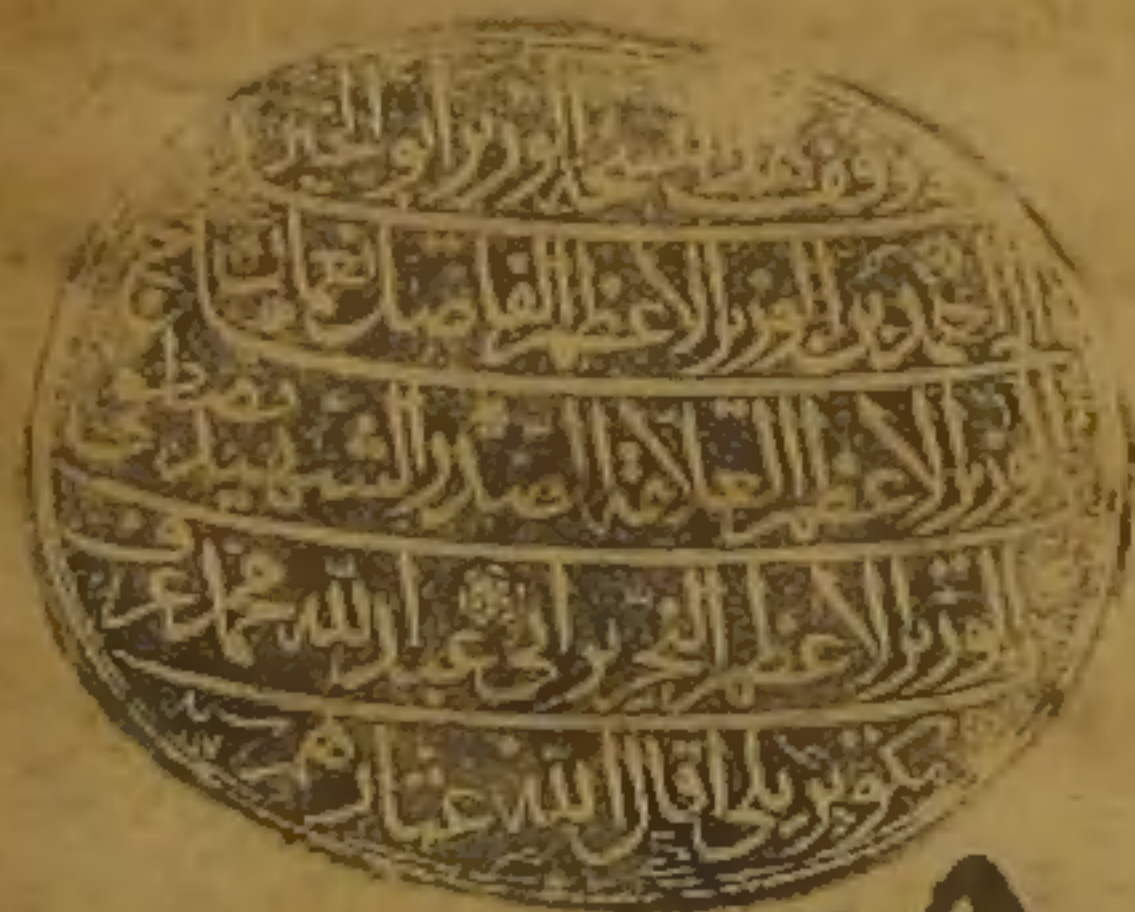 وقف هذه الوزير ابو الخير
الحاج احمد بن الوزير الاعظم الفاضل نعمان بن
الوزير الاعظم العلامة الصدر الشهيد مصطفى بن
الوزير الاعظم النحرير ابي عبد الله محمد عرف
بكوبريلي اقال الله عثارهم سنة